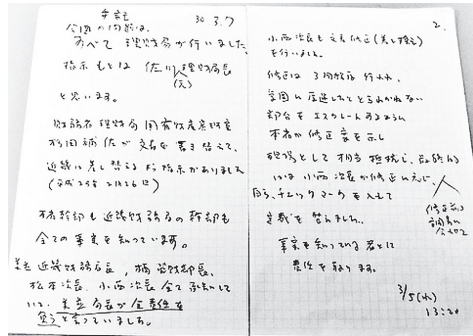 手記 30 3.7
今回の問題は、
すべて 理財局が行いました
指示もとは 佐川△理財局長
(元)
と思います。
財務省 理財局 国有財産審理室
杉田補佐が 文書を書き替えて、
近畿に差し替える指示がありました
(平成29年 2月26日)
本省幹部も近畿財務局の幹部も
全ての事実を知っています。
美並 近畿財務局長, 楠 管財部長,
松本次長, 小西次長 全て承知して
いた。美並局長が全責任を
負うと言っていました。
2.
小西次長も文書修正(差し替え)
を行いました。
修正は 3回程度 行われ、
学園に厚遇したととられかねない
部分を
本省が修正案を示し
現場として 相当 抵抗し、
には 小西次長が修正に応じ、
自ら、チェックマークを入れて
(修正前の
事実を知っている者として
責任を取ります。
3/5(月)
13:20